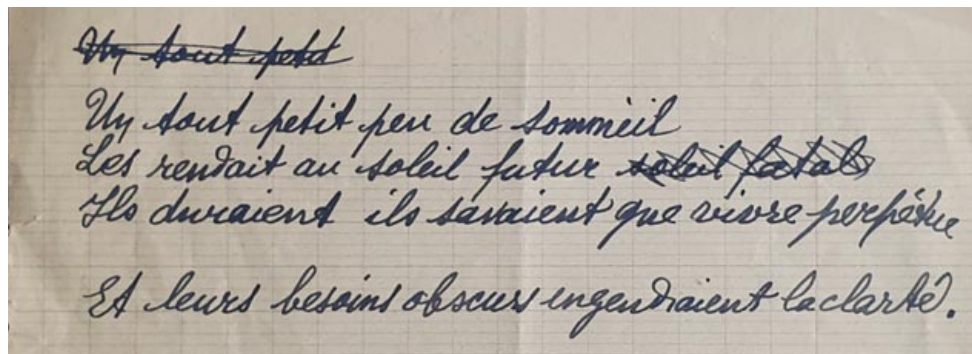 Un tout petit
Un tout petit peu de sommeil
Les rendait au soleil futur soleil fatal
Ils duraient ils savaient que vivre perpétue
Et leurs besoins obscurs engendraient la clarté.